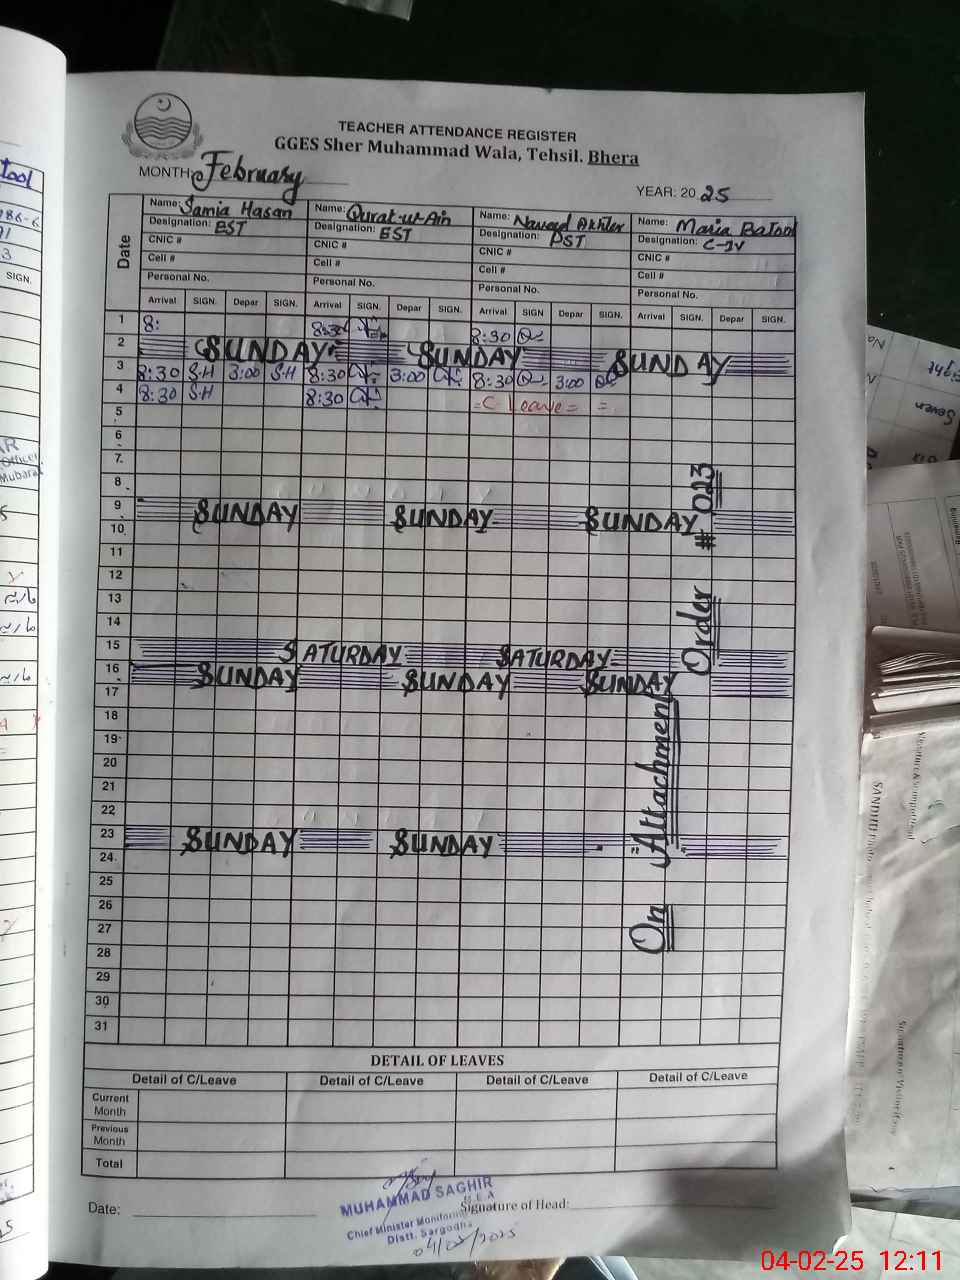 TEACHER ATTENDANCE REGISTER
GGES Sher Muhammad Wala, Tehsil. Bhera
MONTH: February
YEAR: 20 25
Name: Samia Hasan Name: Qurat-ul-Ain Name: Naveed Akhter Name: Maria Batool
Designation: EST Designation: EST Designation: PST Designation: C-IV
CNIC # CNIC # CNIC # CNIC #
Cell # Cell # Cell # Cell #
Personal No. Personal No. Personal No. Personal No.
Date Arrival SIGN. Depar SIGN. Arrival SIGN. Depar SIGN. Arrival SIGN Depar SIGN. Arrival SIGN. Depar SIGN.
1 8: 8:30 8:30
2 SUNDAY SUNDAY SUNDAY
3 8:30 S.H 3:00 S.H 8:30 3:00 8:30 3:00
4 8:30 S.H 8:30 =C Leave= =
5
6
7
8
9 SUNDAY SUNDAY SUNDAY
10
11
12
13
14
15 SATURDAY SATURDAY
16 SUNDAY SUNDAY SUNDAY
17
18
19
20
21
22
23 SUNDAY SUNDAY
24
25
26
27
28
29
30
31
On "Attachment" Order # 023
DETAIL OF LEAVES
Detail of C/Leave Detail of C/Leave Detail of C/Leave Detail of C/Leave
Current Month
Previous Month
Total
Date: Signature of Head:
MUHAMMAD SAGHIR
M.E.A
Chief Minister Monitoring
Distt. Sargodha
04/02/2025
SIGN.
04-02-25 12:11